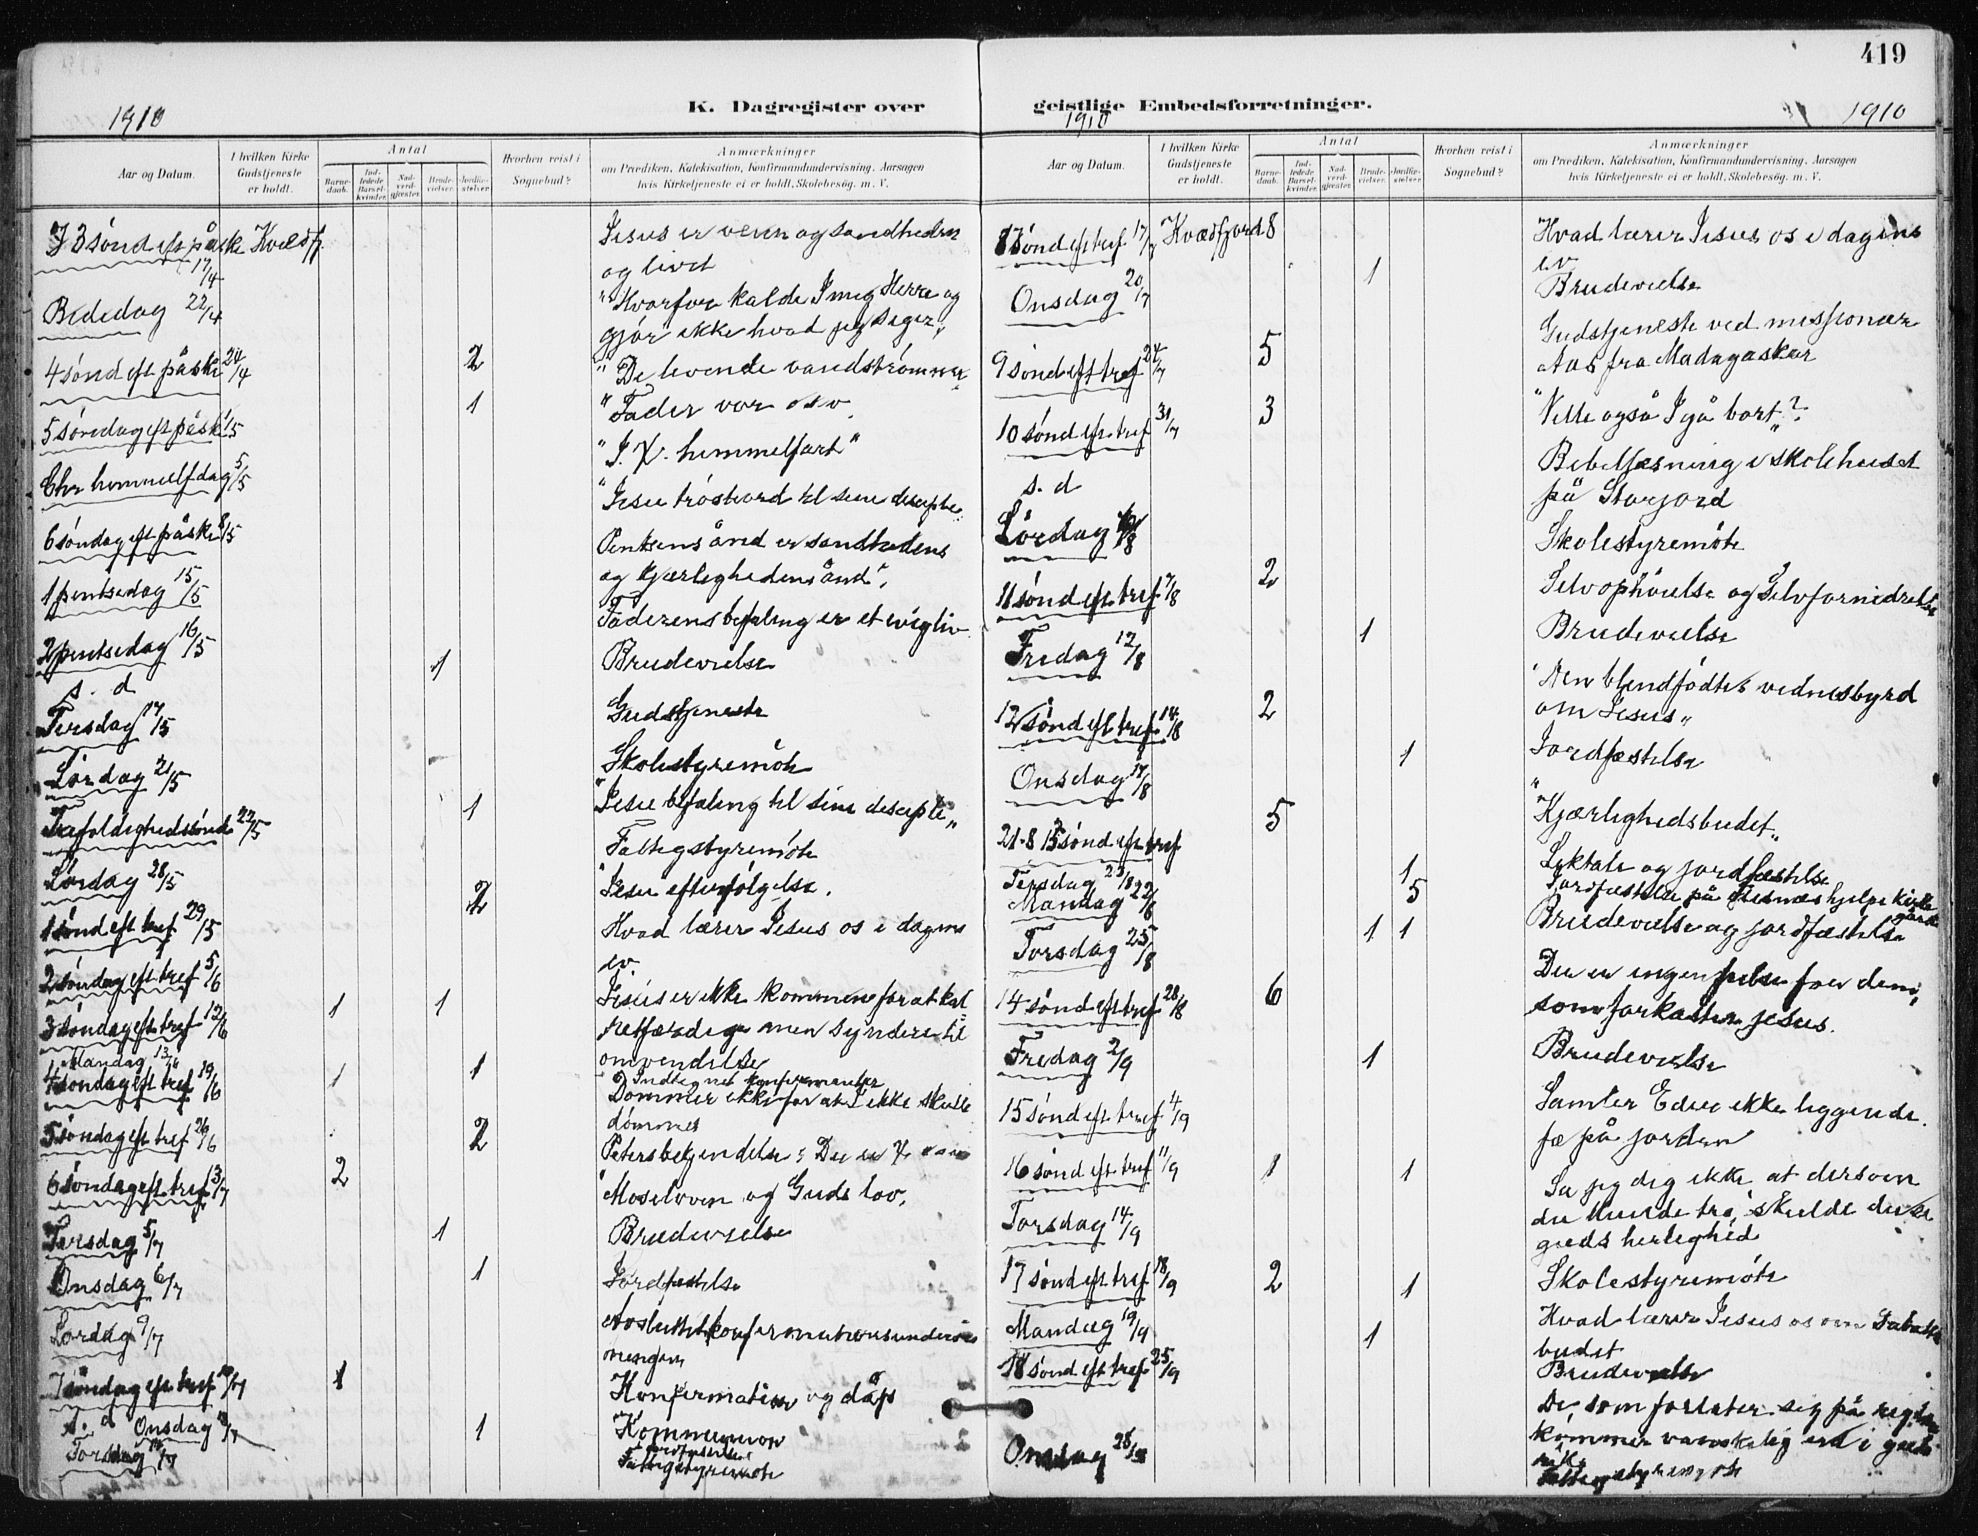 419
K. Dagregister over
geistlige Embedsforretninger.
1910
1910
1910
Aar og Datum.
I hvilken Kirke
Gudstjeneste
er holdt.
Antal
Barne-
daab.
Ind-
ledede
Barsel-
kvinder.
Nad-
verd-
gjester.
Brude-
vielser.
Jordfæ-
stelser.
Hvorhen reist i
Sognebud?
Anmærkninger
om Prædiken, Katekisation, Konfirmandundervisning, Aarsagen
hvis Kirketjeneste ei er holdt, Skolebesøg. m. V.
3 sønd eft påske Kvædfj.
17/4
Jesus er veien og sandheden
og livet
Bededag 22/4
"Hvorfor kalde I mig Herre og
gjør ikke hvad jeg siger"
4 sønd eft påske 24/4 2 "De levende vandstrømmer
5 søndag eft påske 1/5 1 "Fader vor osv.
Chr himmelfdag 5/5 "J. X. himmelfart"
6 søndag eft påske 8/5 "Jesu trøstord til sine disciple
1 pintsedag 15/5 Pintsens ånd er sandhedens
og kjærlighedens ånd".
2 pintsedag 16/5 Faderens befaling er et evig liv
s. d 1 Brudevielse
Tirsdag 17/5 Gudstjeneste
Lørdag 21/5 Skolestyremøte
Trefoldighedssønd 22/5 1 "Jesu befaling til sine disciple"
Lørdag 28/5 Fattigstyremøte
1 sønd eft tref 29/5 2 "Jesu efterfølgelse.
2 søndag eft tref 5/6 Hvad lærer Jesus os i dagens
ev
3 søndag eft tref 12/6 1 1 Jesus er ikke kommen for at kal
retfærdige men syndere til
omvendelse
Mandag 13/6 Indtegnet konfirmanter
4 søndag eft tref 19/6 1 1 Dømmer ikke for at I ikke skulle
dømmes
5 søndag eft tref 26/6 2 Peters bekjendelse: Du er X
6 søndag eft tref 3/7 2 "Moseloven og Guds lov.
Tirsdag 5/7 1 Brudevielse
Onsdag 6/7 1 Jordfestelse
Lørdag 9/7 Avsluttet konfirmationsundervis
ningen
7 søndag eft tref 10/7 1 Konfirmation og dåp
s. d Onsdag 1 Kommunion
Jordfestelse
Torsdag Fattigstyremøte
Aar og Datum.
I hvilken Kirke
Gudstjeneste
er holdt.
Antal
Barne-
daab.
Ind-
ledede
Barsel-
kvinder.
Nad-
verd-
gjester.
Brude-
vielser.
Jordfæ-
stelser.
Hvorhen reist i
Sognebud?
Anmærkninger
om Prædiken, Katekisation, Konfirmandundervisning, Aarsagen
hvis Kirketjeneste ei er holdt, Skolebesøg. m. V.
8 sønd eft tref 17/7 Kvædfjord 8 "Hvad lærer Jesus os i dagens
ev
Onsdag 20/7 1 Brudevielse
9 sønd eft tref 24/7 5 Gudstjeneste ved missionær
Aas fra Madagaskar
10 sønd eft tref 31/7 3 "Ville også I gå bort"?
s. d Bibellæsning i skolehuset
på Storjord
Lørdag 6/8 Skolestyremøte
11 sønd eft tref 7/8 2 Selvophøielse og selvfornedrelse
Fredag 12/8 1 Brudevielse
12 sønd eft tref 14/8 2 "Den blindfødtes vidnesbyrd
om Jesus"
Onsdag 17/8 1 Jordfæstelse
21-8 13 sønd eft tref 5 "Kjærlighedsbudet"
Tirsdag 23/8 1 Liktale og jordfæstelse
Mandag 22/8 5 Jordfæstelse på hjelpekirke
gård
Torsdag 25/8 1 1 Brudevielse og jordfæstelse
14 sønd eft tref 28/8 6 Der er ingen frelse for dem,
som forkaster Jesus.
Fredag 2/9 1 Brudevielse
15 sønd eft tref 4/9 Samler Eder ikke liggende
fæ på jorden
16 sønd eft tref 11/9 1 1 Sa jeg dig ikke at dersom
du kunde tro, skulde du se
guds herlighed
Torsdag 14/9 Skolestyremøte
17 sønd eft tref 18/9 2 1 Hvad lærer Jesus os om Sabats
budet
Mandag 19/9 1 Brudevielse
18 sønd eft tref 25/9 De som forlater sig på rigdom
kommer vanskelig ind i guds
rike
Onsdag 28/9 Fattigstyremøte